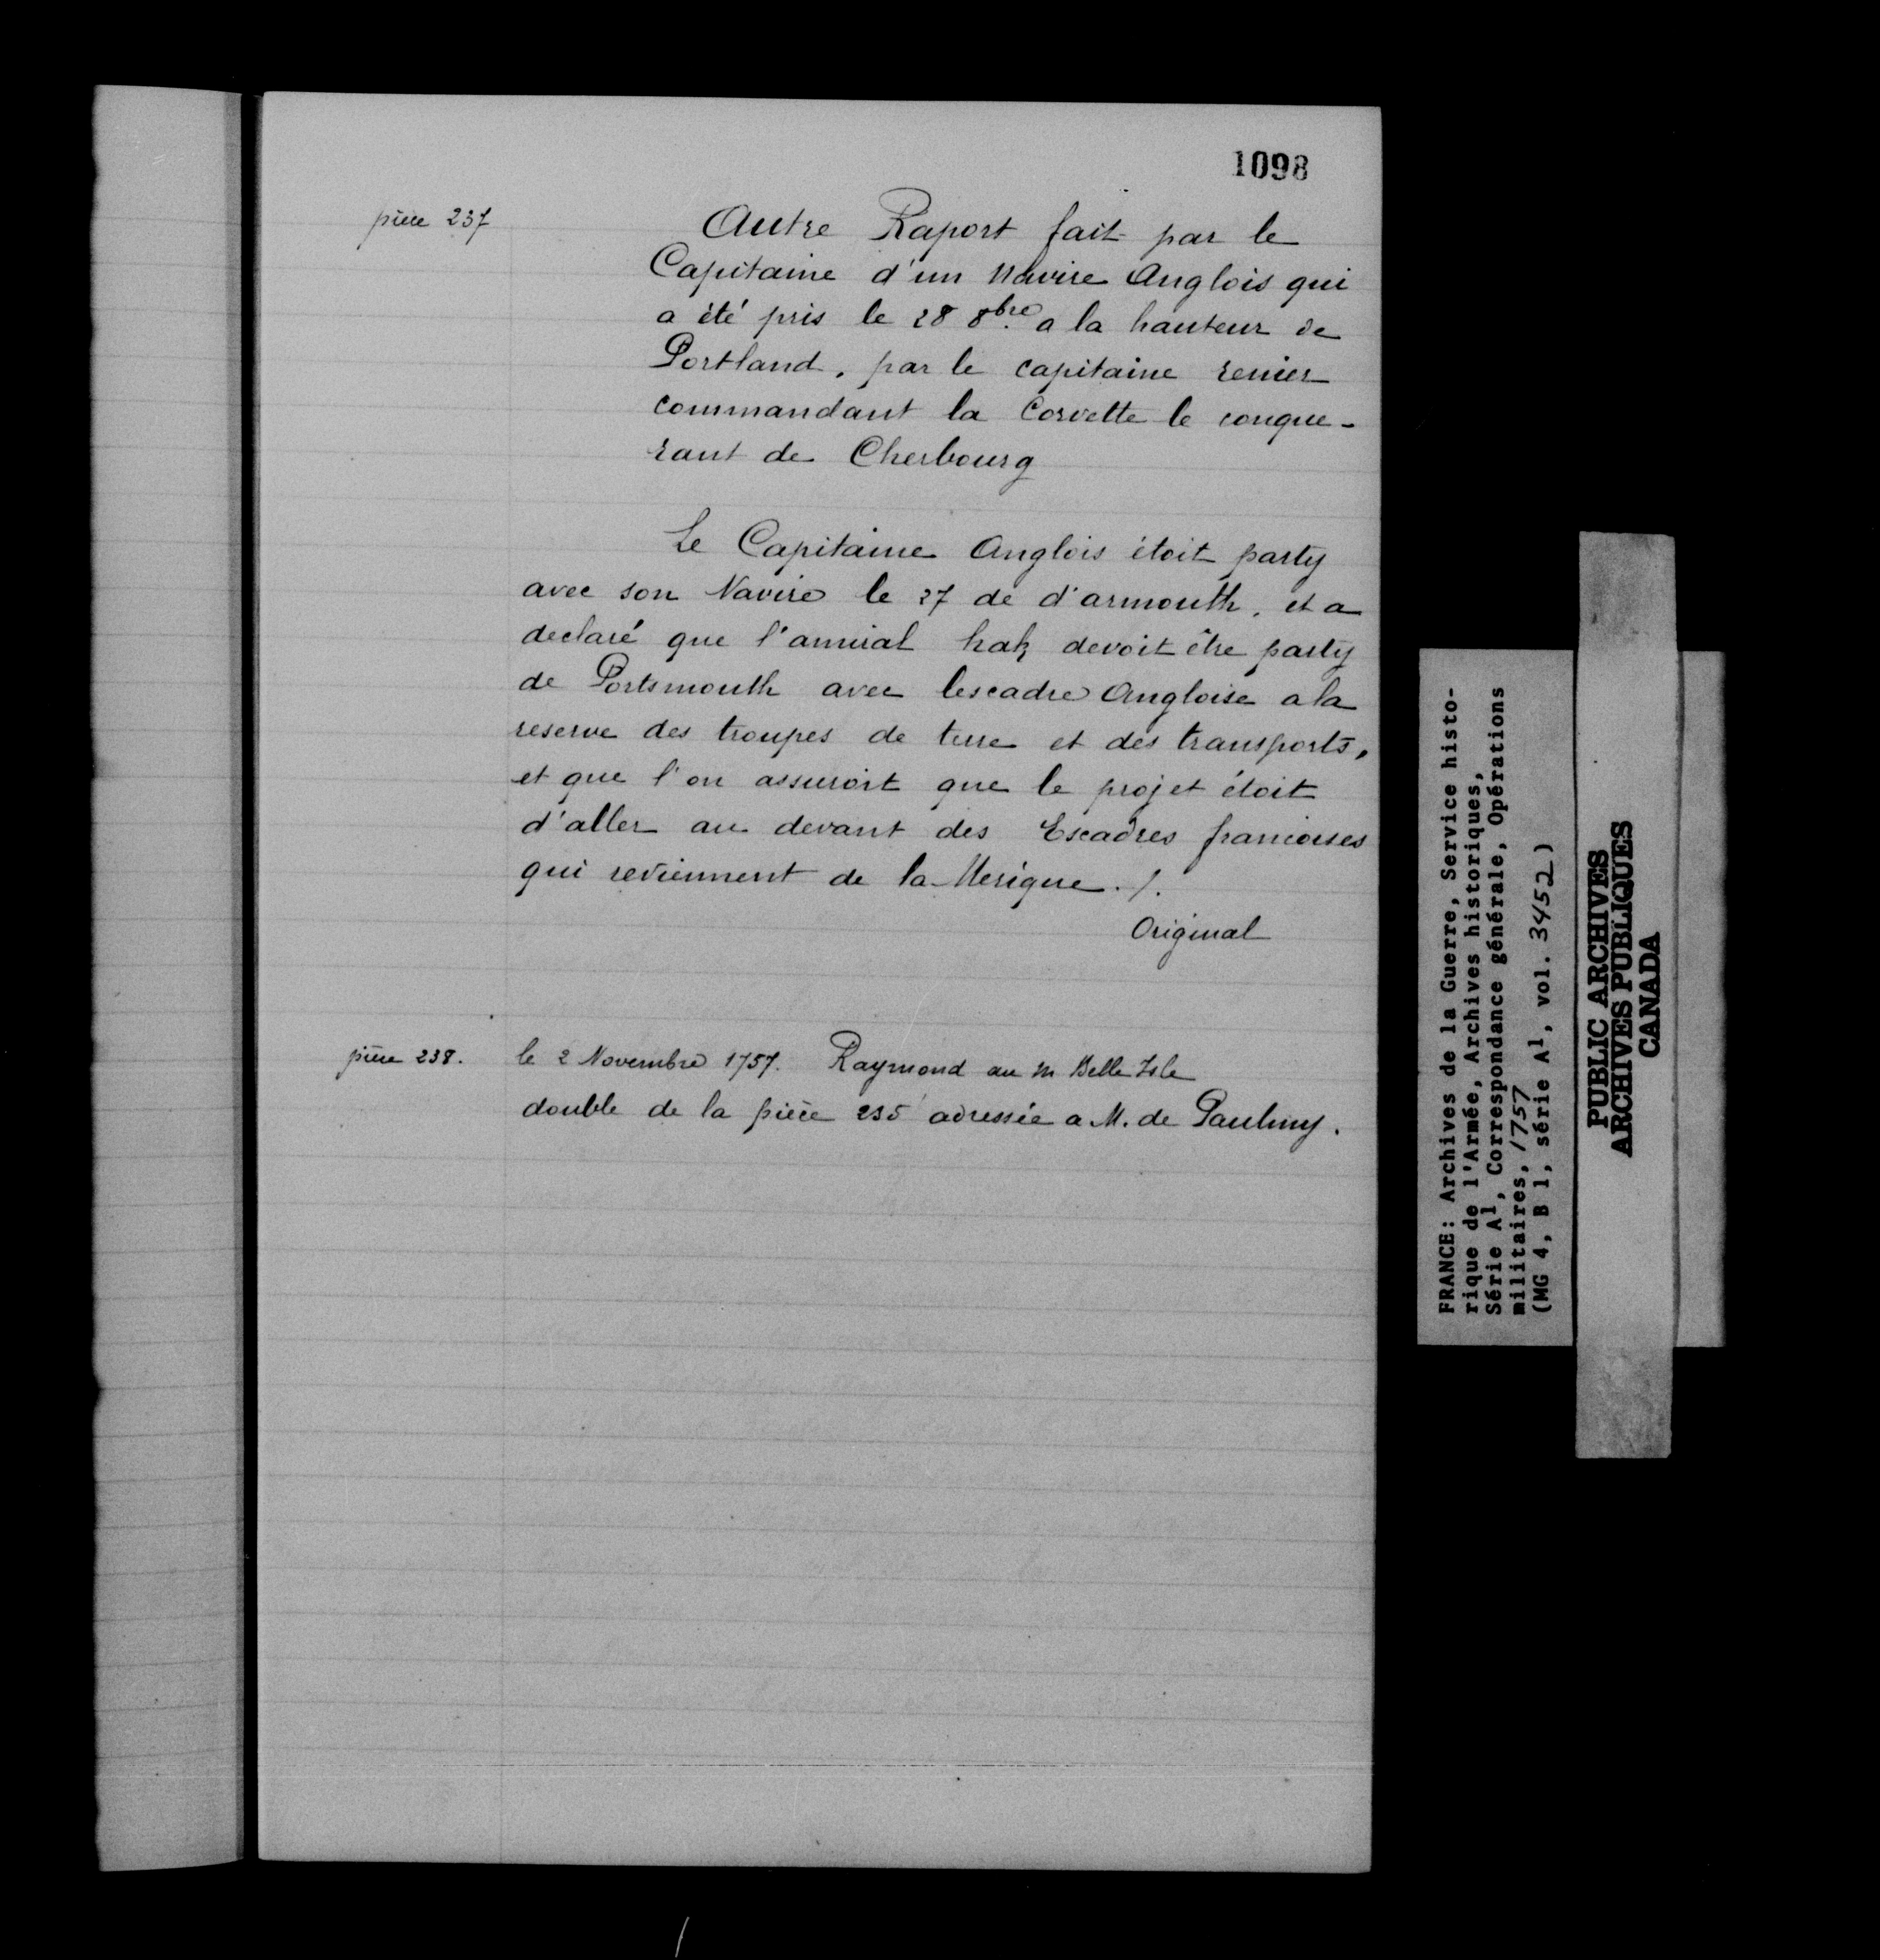 1098
pièce 237
Autre Raport fait par le
Capitaine d'un Navire Anglois qui
a été pris le 28 8bre a la hauteur de
Portland, par le capitaine renier
commandant la Corvette le conque-
rant de Cherbourg
Le Capitaine Anglois étoit party
avec son Navire le 27 de d'armouth, et a
declaré que l'amiral hak devoit être party
de Portsmouth avec lescadre Angloise a la
reserve des troupes de terre et des transports,
et que l'on assuroit que le projet étoit
d'aller au devant des Escadres francoises
qui reviennent de la Merique ./.
Original
pièce 238.
le 2 Novembre 1757. Raymond au m Belle Isle
double de la pièce 235 adressée a M. de Paulmy.
FRANCE: Archives de la Guerre, Service histo-
rique de l'Armée, Archives historiques,
Série A1, Correspondance générale, Opérations
militaires, 1757
(MG 4, B 1, série A1, vol. 3452)
PUBLIC ARCHIVES
ARCHIVES PUBLIQUES
CANADA